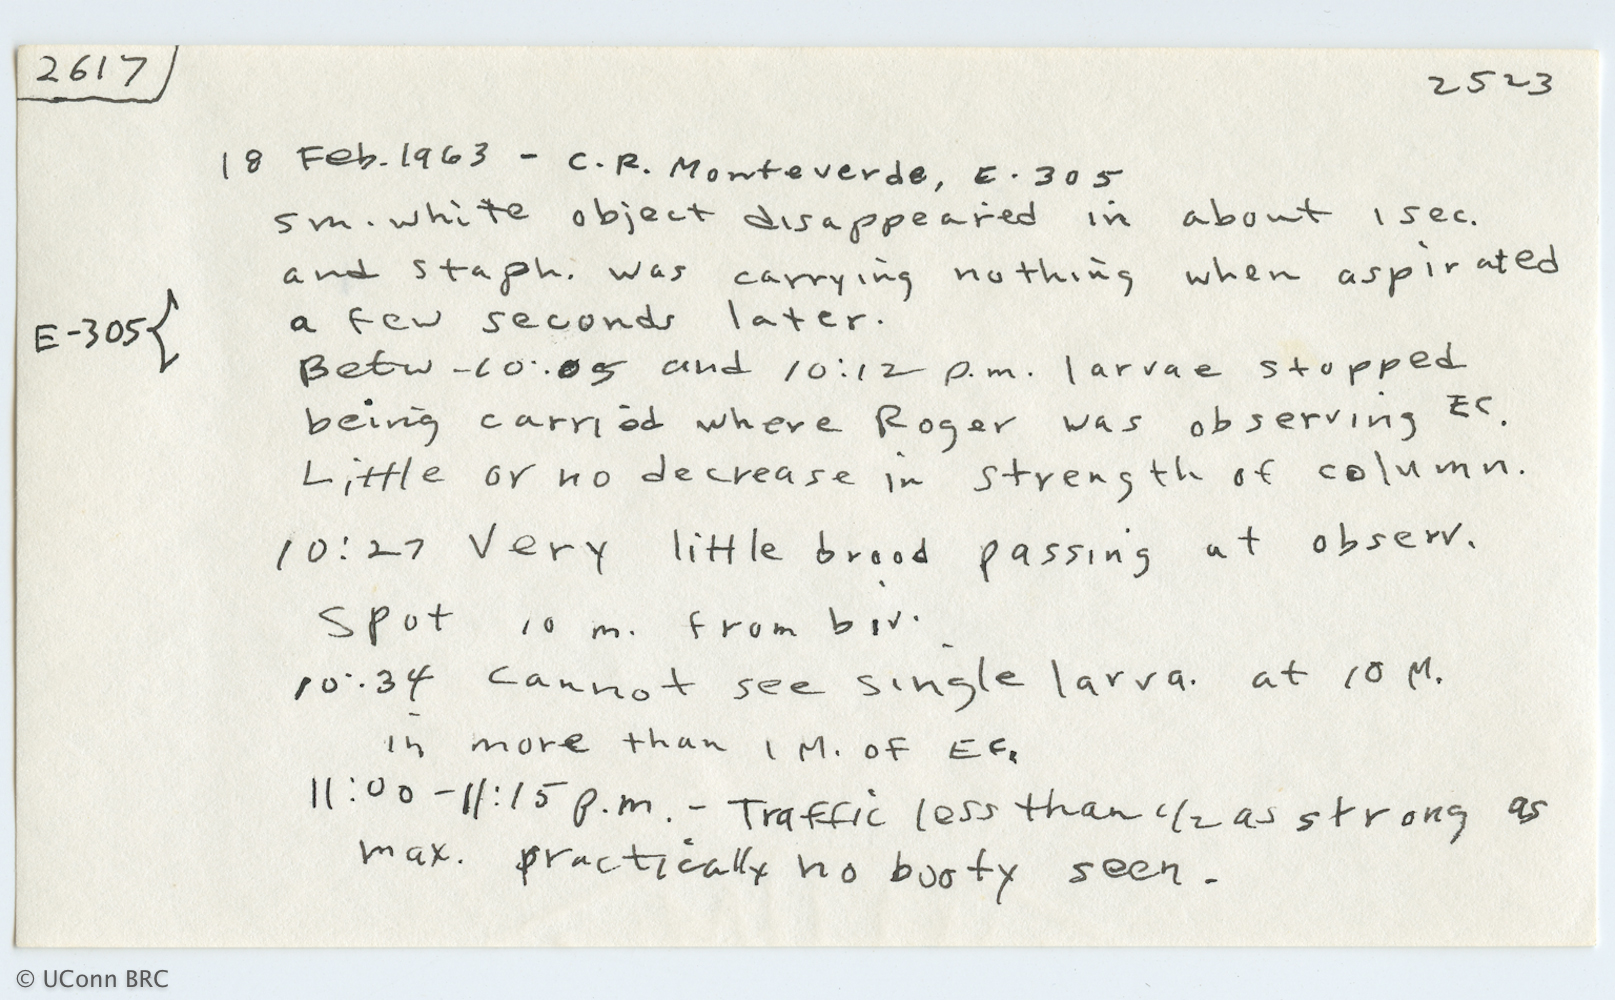 2617
2523
18 Feb. 1963 - C.R. Monteverde, E-305
sm. white object disappeared in about 1 sec.
and staph. was carrying nothing when aspirated
a few seconds later.
E-305{
Betw -10:05 and 10:12 p.m. larvae stopped
being carried where Roger was observing EC.
Little or no decrease in strength of column.
10:27 Very little brood passing at observ.
spot 10 m. from biv.
10:34 cannot see single larva. at 10 M.
in more than 1 M. of EC.
11:00-11:15 p.m. - Traffic less than 1/2 as strong as
max. practically no booty seen.
© UConn BRC